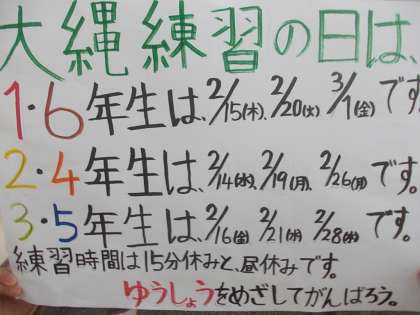 大縄練習の日は、
1・6年生は、2/15(木)、2/20(火) 3/1(金)です
2・4年生は、2/14(水)、2/19(月)、2/26(月)です。
3・5年生は、2/16(金) 2/21(水) 2/28(水)です。
練習時間は15分休みと、昼休みです。
ゆうしょうをめざしてがんばろう。